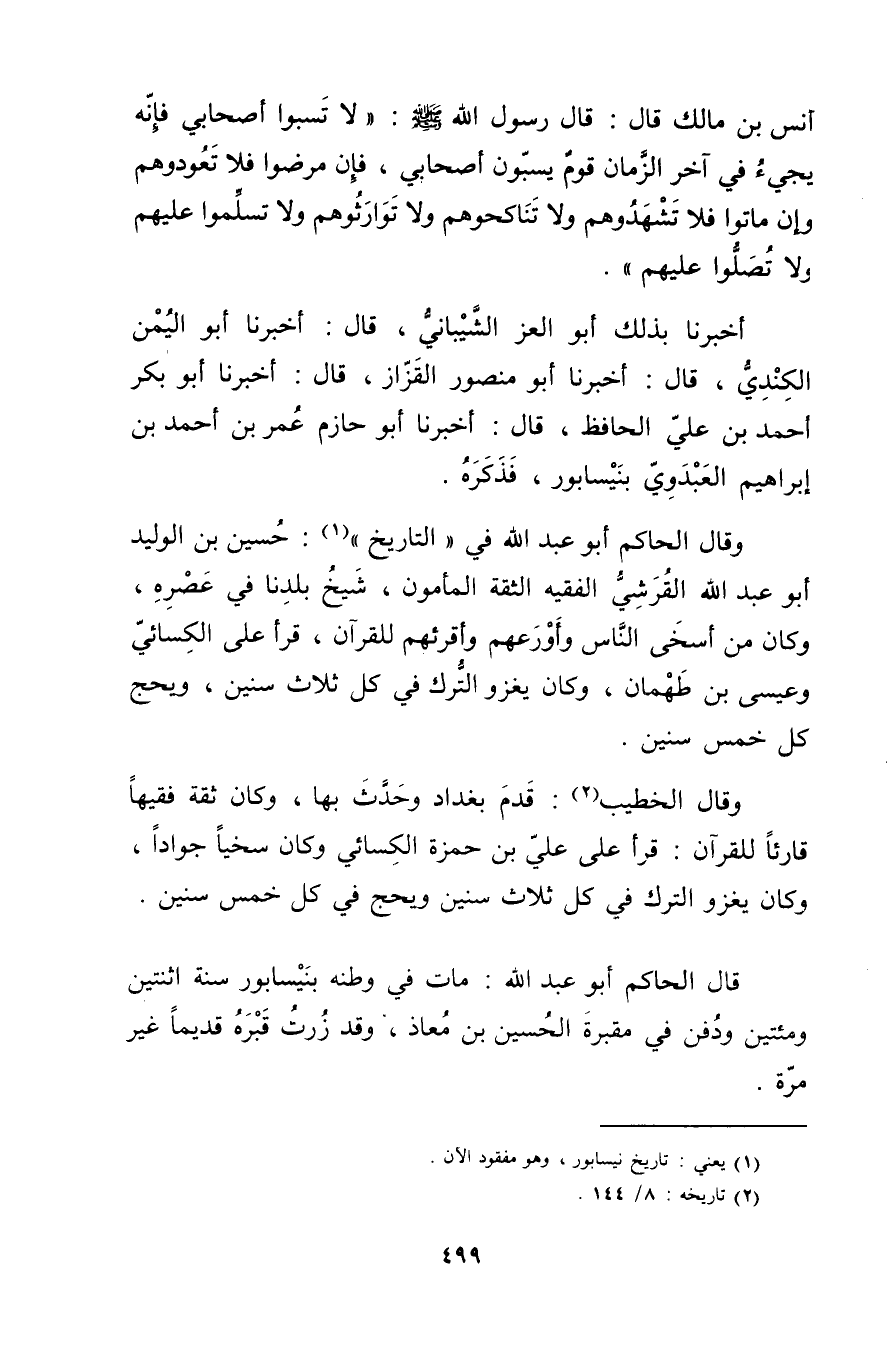 أنس بن مالك قال : قال رسول الله ﷺ : « لا تَسبوا أصحابي فإِنّه
يجيءُ في آخر الزَّمان قومٌ يسبّون أصحابي ، فإن مرضوا فلا تَعُودوهم
وإن ماتوا فلا تَشْهَدُوهم ولا تَنَاكحوهم ولا تَوَارَثُوهم ولا تسلِّموا عليهم
ولا تُصَلُّوا عليهم » .
أخبرنا بذلك أبو العز الشَّيْبانيُّ ، قال : أخبرنا أبو اليُمْن
الكِنْدِيُّ ، قال : أخبرنا أبو منصور القَزّاز ، قال : أخبرنا أبو بكر
أحمد بن عليّ الحافظ ، قال : أخبرنا أبو حازم عُمر بن أحمد بن
إبراهيم العَبْدَوِيّ بنَيْسابور ، فَذَكَرَهُ .
وقال الحاكم أبو عبد الله في « التاريخ »(١) : حُسين بن الوليد
أبو عبد الله القُرَشِيُّ الفقيه الثقة المأمون ، شَيخُ بلدِنا في عَصْرِهِ ،
وكان من أسخَى النَّاس وأَوْرَعهم وأقرئهم للقرآن ، قرأ على الكِسائيّ
وعيسى بن طَهْمان ، وكان يغزو التُّرك في كل ثلاث سنين ، ويحج
كل خمس سنين .
وقال الخطيب(٢) : قَدمَ بغداد وحَدَّثَ بها ، وكان ثقة فقيهاً
قارئاً للقرآن : قرأ على عليّ بن حمزة الكِسائي وكان سخياً جواداً ،
وكان يغزو الترك في كل ثلاث سنين ويحج في كل خمس سنين .
قال الحاكم أبو عبد الله : مات في وطنه بنَيْسابور سنة اثنتين
ومئتين ودُفن في مقبرةَ الحُسين بن مُعاذ ، وقد زُرتُ قَبْرَهُ قديماً غير
مرّة .
(١) يعني : تاريخ نيسابور ، وهو مفقود الآن .
(٢) تاريخه : ٨/ ١٤٤ .
٤٩٩